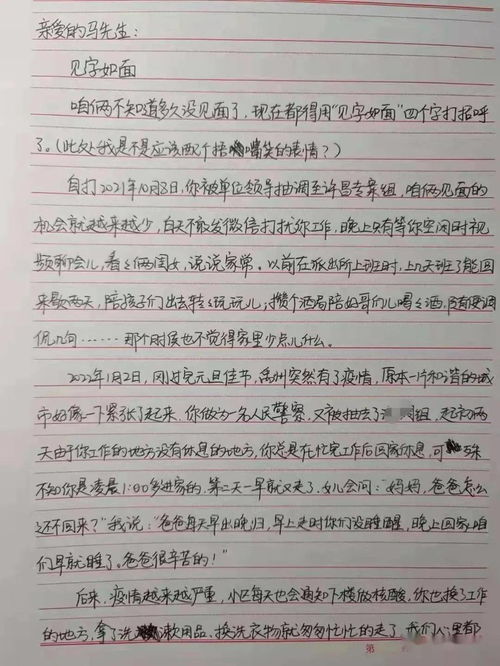 亲爱的马先生：
见字如面
咱俩不知道多久没见面了，现在都得用“见字如面”四个字打招呼
了。（此处我是不是应该两个捂嘴笑的表情？）
自打2021年10月8日，你被单位领导抽调至许昌专案组，咱俩见面的
机会就越来越少，白天不敢发微信打扰你工作，晚上只有等你空闲时视
频聊会儿，看看俩闺女，说说家常。以前在派出所上班时，上几天班了能回
来歇两天，陪孩子们出去转转玩玩儿，攒个酒局陪好哥们儿喝喝酒，调
侃几句……那个时候也不觉得家里少点儿什么。
2022年1月2日，刚过完元旦佳节，禹州突然有了疫情，原本一片和谐的城
市好像一下紧张了起来，你做为一名人民警察，又被抽去了组，起初两
天由于你工作的地方没有休息的地方，你总是在忙完工作后回家休息，可殊
不知你是凌晨1:00多进家的，第二天一早就又走了，女儿会问：“妈妈，爸爸怎么
还不回来？”我说：“爸爸每天早出晚归，早上走时你们没睡醒，晚上回家咱
们早就睡了。爸爸很辛苦的！”
后来，疫情越来越严重，小区每天也会通知下楼做核酸，你也换了工作
的地方，拿了洗漱用品、换洗衣物就匆匆忙忙的走了，我们心里都
第